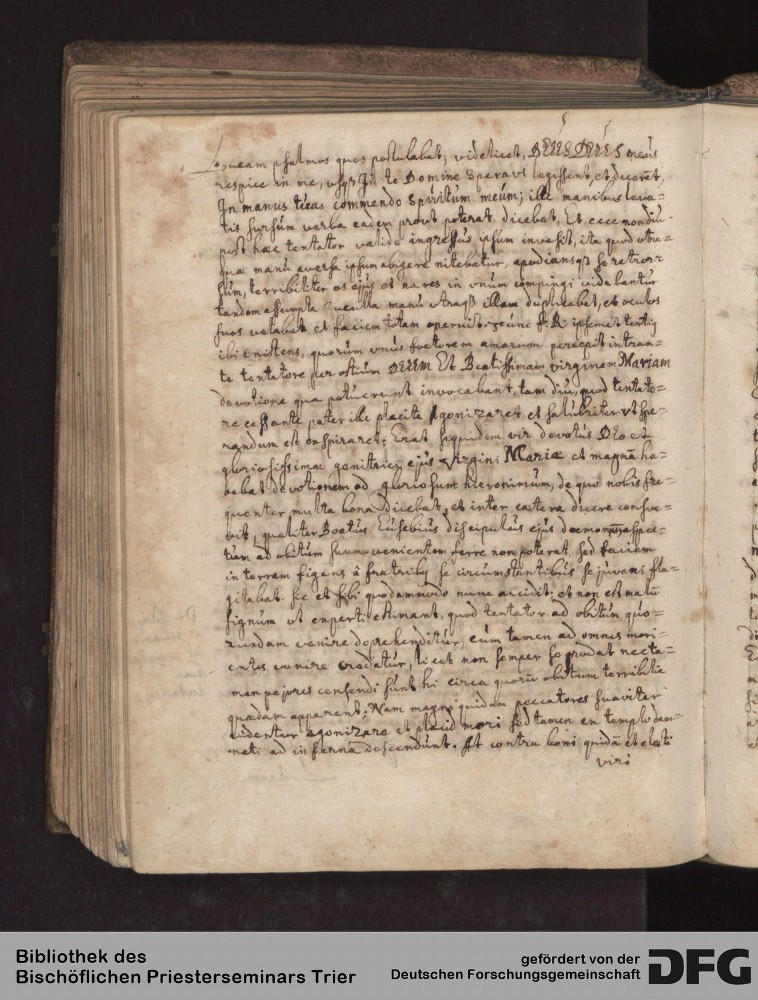 quam psalmos quos postulabat; videlicet, DEUS DEUS meus
respice in me, usq3 In te Domine Speravi legissent, et diceret,
In manus tuas commendo Spiritum meum; ille manibus leva=
tis sursum verba eadem prout poterat dicebat, Et ecce non diu
post hæc tentator valide ingressus ipsum invasit, ita quod utra=
que manu aversa ipsum abigere nitebatur,
sum, terribiliter os ejus et nares in unum compingi videbantur
tandem assumpta Cuculla manu illam duplicabat, et oculos
suos velabat et faciem totam operuit.
ibi existens, quorum unus foetorem amarum percepit intran=
te tentatore per ostium DEUM Et Beatissimam virginem Mariam
devotione qua potuerunt invocabant, tam diu, quod tentato=
re cessante pater ille placite Agonizaret et salubriter ut spe=
randum est exspiraret: Erat siquidem vir devotus Deo et
gloriosissimæ genitrici ejus Virgini Mariæ et magnā ha=
bebat devotionem ad gloriosum hieronimum, de quo nobis fre=
quenter multa bona dicebat, et inter cætera dicere consue=
vit, qualiter Beatus Eusebius discipulus ejus dæmonum aspec=
tum ad obitum suum venientem ferre non poterat, sed faciem
in terram figens â fratribus se circumstantibus se juvari fla=
gitabat. sic et sibi quodammodo nunc accidit: et non est malū
signum ut experti estimant, quod tentator ad obitum quo=
rundam venire deprehenditur, cum tamen ad omnes mori=
entes venire credatur, licet non semper se prodat nec ta=
men pejores censendi sunt hi circa quorū obitum terribilia
quædam apparent; Nam magni quidam peccatores suaviter
videntur agonizare et placide mori sed tamen ex templo dam=
nati ad inferna descendunt. At contra boni quidā et electi
viri
Bibliothek des
Bischöflichen Priesterseminars Trier
gefördert von der
Deutschen Forschungsgemeinschaft
DFG